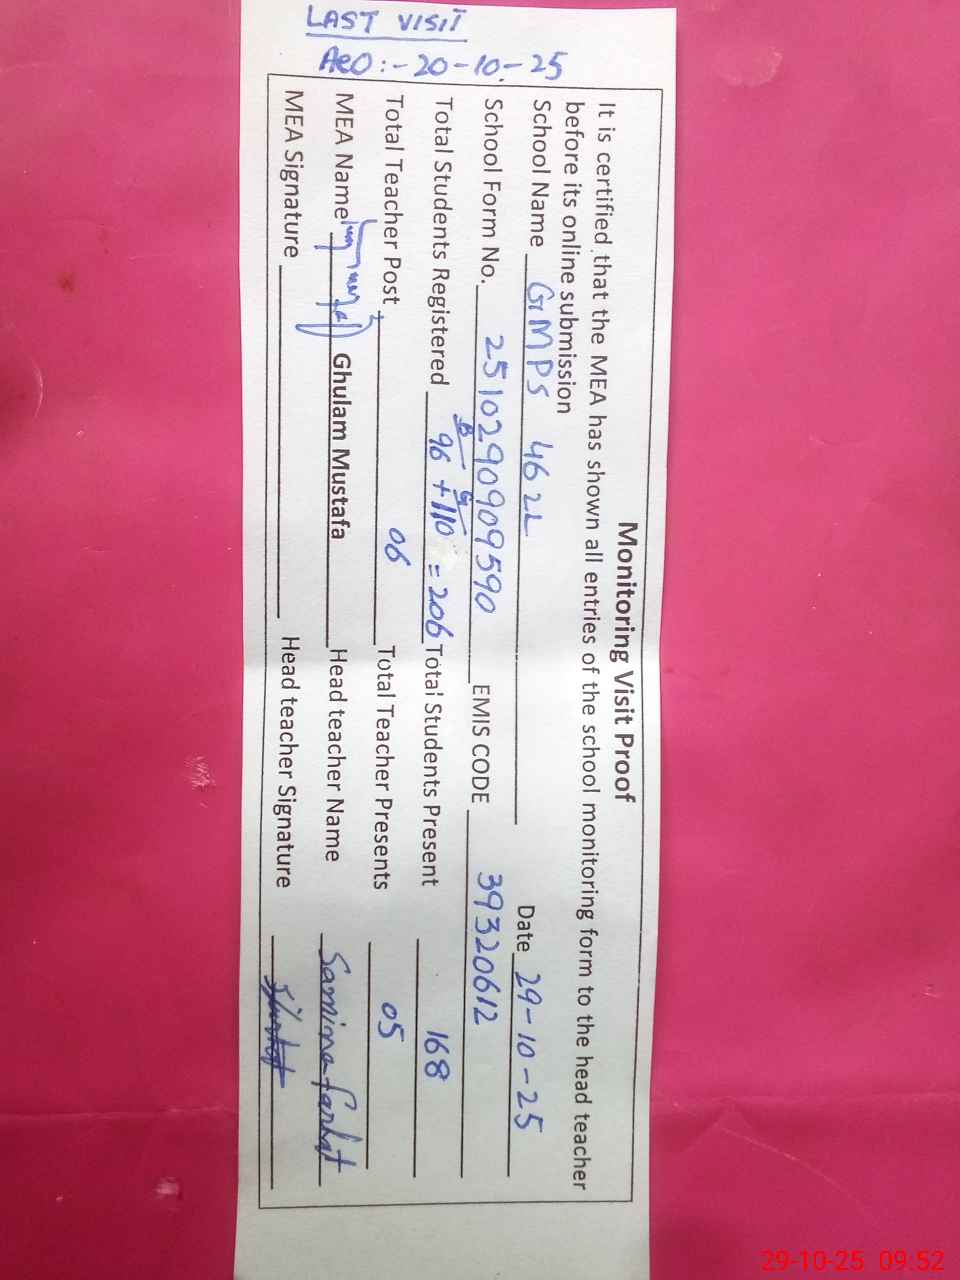 LAST VISIT
AEO:-20-10-25
Monitoring Visit Proof
It is certified that the MEA has shown all entries of the school monitoring form to the head teacher
before its online submission
School Name GMPS 462L Date 29-10-25
School Form No. 2510290909590 EMIS CODE 39320612
B G
Total Students Registered 96 + 110 = 206 Total Students Present 168
Total Teacher Post 06 Total Teacher Presents 05
MEA Name Ghulam Mustafa Head teacher Name Samina Farhat
MEA Signature Head teacher Signature
29-10-25 09:52